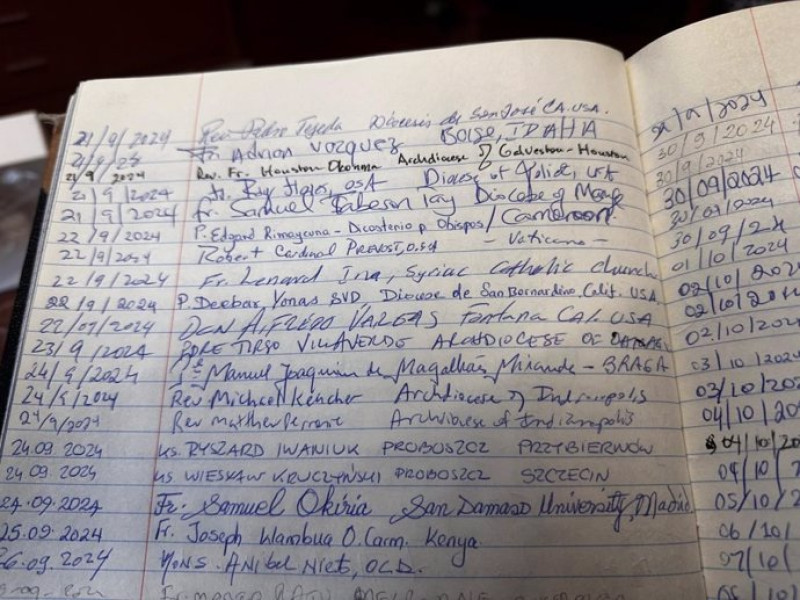 21/9/2024 Rev. Pedro Tejeda Diocesis de San José CA. USA.
21/9/24 Fr. Adrian Vazquez BOISE, IDAHA
21 9 2024 Rev. Fr. Houston Okonma Archdiocese of Galveston-Houston
21/9/2024 Fr. OSA Diocese of Joliet, USA
21/9/2024 fr. Samuel Diocese of
22/9/2024 P. Edgard Rimaycuna - Dicasterio p. Obispos / Cameroon.
22/9/2024 Robert Cardinal PREVOST, O.S.A - Vaticano -
22/9/2024 Fr. Lenard Ina, Syriac Catholic church
22/9/2024 P. Deebar, Yonas SVD, Diocese de San Bernardino, Calif. USA,
22/09/2024 DON ALFREDO VARGAS Fontana CAL. USA
23/9/2024 TIRSO VILLAVERDE ARCHDIOCESE OF
24/9/2024 Manuel Joaquim de Magalhães Miranda - BRAGA
24/9/2024 Rev Michael Keucher Archdiocese of Indianapolis
24/9/2024 Rev Matthew Perronie Archdiocese of Indianapolis
24.09.2024 ks. RYSZARD IWANIUK PROBOSZCZ PRZYBIERNÓW
24.09.2024 ks WIESŁAW KRUCZYŃSKI PROBOSZCZ SZCZECIN
24.09.2024 Fr. Samuel Okiria San Damaso University, Madrid
25.09.2024 Fr. Joseph Wambua O.Carm. Kenya.
26.09.2024 MONS. ANIBAL NIETO, OCD.
/9/2024
30/9/2024
30/9/2024
30/09/2024
30/09/2024
30/09/24
01/10/2024
02/10/202
02/10/20
02/10/202
03/10/2024
03/10/202
04/10/20
04/10/20
04/10/
05/10/2
06/10/
07/10/